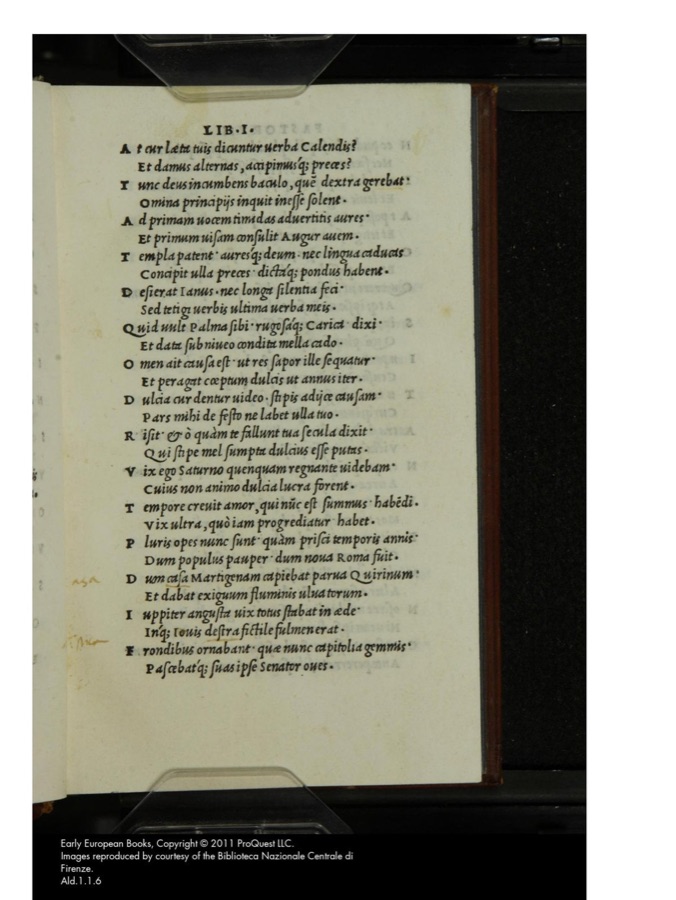 LIB·I·
A t cur læta tuis dicuntur uerba Calendis?
Et damus alternas, accipimusq; preces?
T unc deus incumbens baculo, quē dextra gerebat·
Omina principijs inquit inesse solent·
A d primam uocem timidas aduertitis aures·
Et primum uisam consulit Augur auem·
T empla patent· auresq; deum· nec lingua caducas
Concipit ulla preces· dictaq; pondus habent·
D esierat Ianus· nec longa silentia feci·
Sed tetigi uerbis ultima uerba meis·
Quid uult Palma sibi· rugosaq; Carica· dixi·
Et data sub niueo condita mella cado·
O men ait causa est· ut res sapor ille sequatur·
Et peragat cœptum dulcis ut annus iter·
D ulcia cur dentur uideo· stipis adijce causam·
Pars mihi de festo ne labet ulla tuo·
R isit· & ò quàm te fallunt tua secula dixit·
Qui stipe mel sumpta dulcius esse putas·
V ix ego Saturno quenquam regnante uidebam·
Cuius non animo dulcia lucra forent·
T empore creuit amor, qui nūc est summus· habēdi·
Vix ultra, quò iam progrediatur· habet·
P luris opes nunc sunt· quàm prisci temporis annis·
Dum populus pauper· dum noua Roma fuit·
D um casa Martigenam capiebat parua Quirinum·
Et dabat exiguum fluminis ulua torum·
I uppiter angusta uix totus stabat in æde·
Inq; Iouis dextra fictile fulmen erat·
F rondibus ornabant· quæ nunc capitolia gemmis·
Pascebatq; suas ipse Senator oues·
Early European Books, Copyright © 2011 ProQuest LLC.
Images reproduced by courtesy of the Biblioteca Nazionale Centrale di
Firenze.
Ald.1.1.6